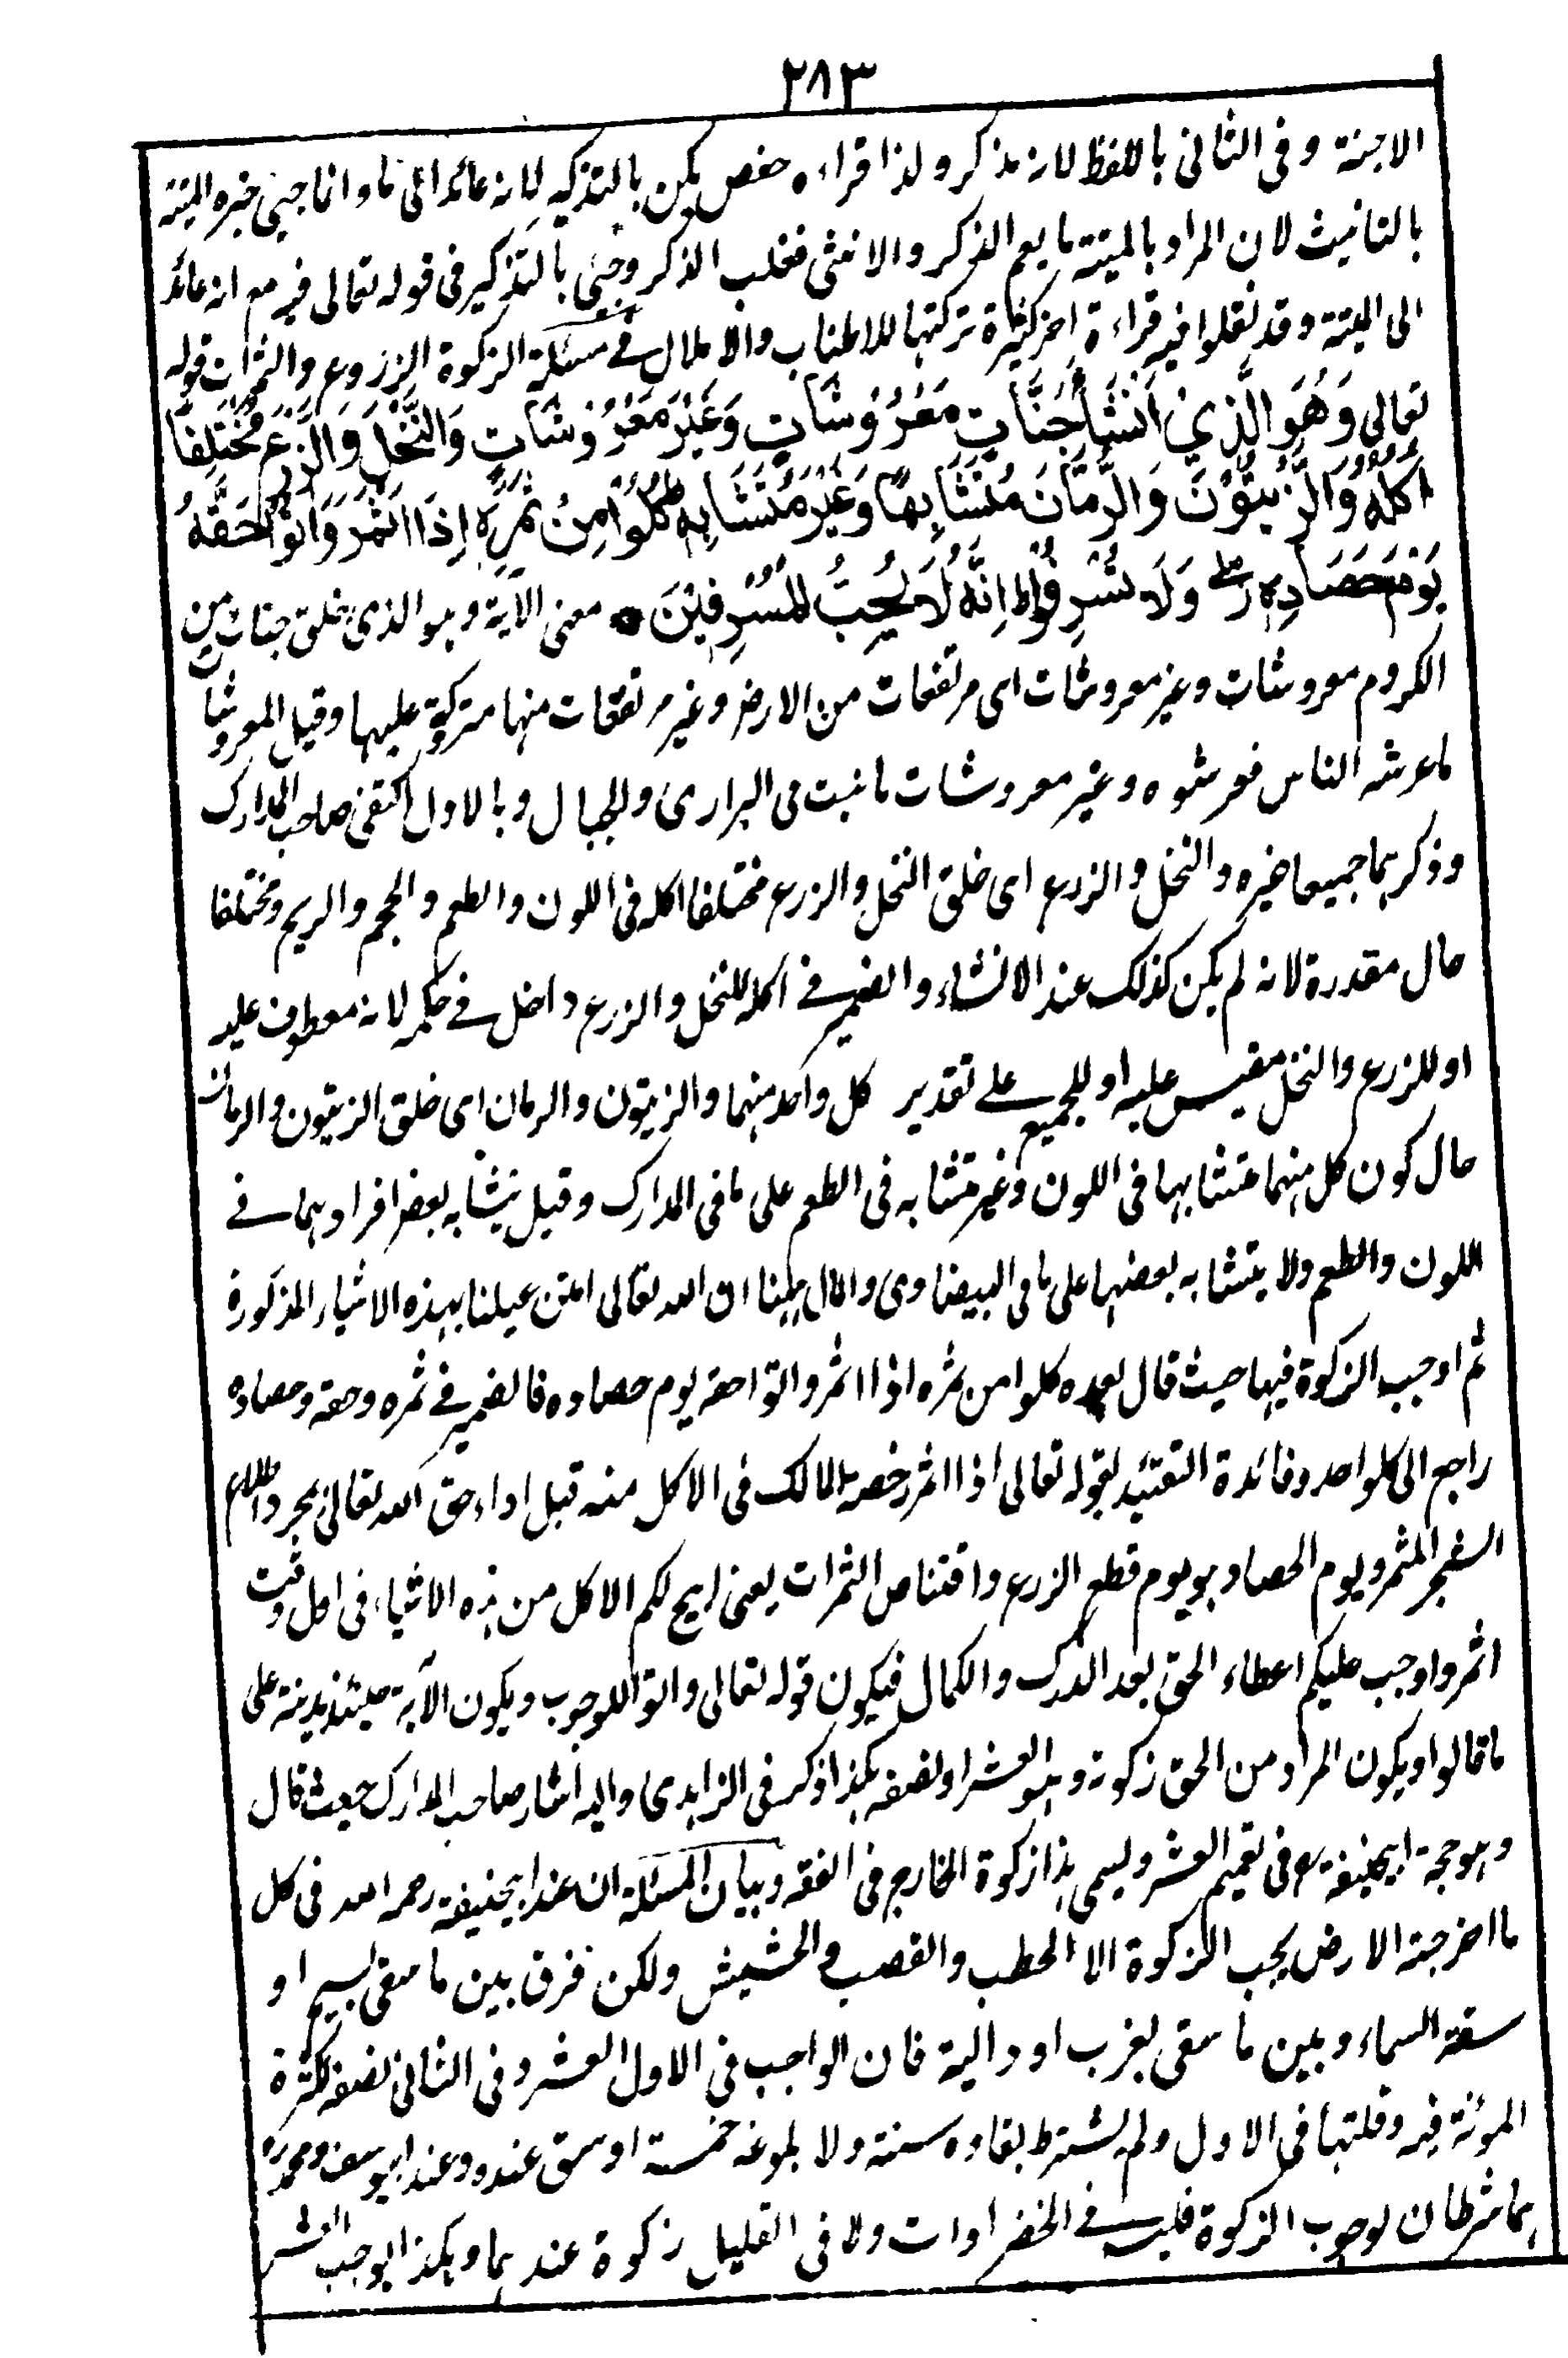 ٢٨٣
الاجنة وفي الثاني باللفظ لانه مذكر ولذا قراءه حفص يكن بالتذكير لانه عائد الى ما وانما جيئ خبره الميتة
بالتانيث لان المراد بالميتة ما يعم الذكر والانثى فغلب الذكر وجئ بالتذكير في قوله تعالى فيه مع انه عائد
الى الميتة وقد نقلوا فيه قراءة اخر كثيرة تركتها للاطناب والاملال في مسئلة الزكوة الزروع والثمرات قوله
تعالى وَهُوَ الَّذِيْ اَنْشَأَ جَنَّاتٍ مَعْرُوْشَاتٍ وَغَيْرَ مَعْرُوْشَاتٍ وَالنَّخْلَ وَالزَّرْعَ مُخْتَلِفًا
اُكُلُهُ وَالزَّيْتُوْنَ وَالرُّمَّانَ مُتَشَابِهًا وَغَيْرَ مُتَشَابِهٍ ط كُلُوْا مِنْ ثَمَرِهٖ اِذَا اَثْمَرَ وَاٰتُوْا حَقَّهُ
يَوْمَ حَصَادِهٖ وَلَا تُسْرِفُوْا ط اِنَّهُ لَا يُحِبُّ الْمُسْرِفِيْنَ ۝ معنى الآية وهو الذي خلق جنات من
الكروم معروشات وغير معروشات اى مرتفعات من الارض وغير مرتفعات منها متروكة عليها وقيل المعروشات
ما عرشه الناس فعرشوه وغير معروشات ما نبت في البرارى والجبال وبالاول اكتفى صاحب المدارك
وذكرهما جميعا غيره والنخل والزرع اى خلق النخل والزرع مختلفا اكله في اللون والطعم والحجم والريح ومختلفا
حال مقدرة لانه لم يكن كذلك عند الانشاء والضمير في اكله للنخل والزرع داخل في حكمه لانه معطوف عليه
او للزرع والنخل مقيس عليه او للجميع على تقدير كل واحد منهما والزيتون والرمان اى خلق الزيتون والرمان
حال كون كل منهما متشابها في اللون وغير متشابه في الطعم على ما في المدارك وقيل يتشابه بعض افرادهما في
اللون والطعم ولا يتشابه بعضها على ما في البيضاوى والمآل ههنا ان الله تعالى امتن علينا بهذه الاشياء المذكورة
ثم اوجب الزكوة فيها حيث قال بعده كلوا من ثمره اذا اثمر واتوا حقه يوم حصاده فالضمير في ثمره وحقه وحصاده
راجع الى كلواحد وفائدة التقييد بقوله تعالى اذا اثمر رخصة المالك في الاكل منه قبل اداء حق الله تعالى بمجرد اطلاع
الشجر المثمر ويوم الحصاد هو يوم قطع الزرع واقتناص الثمرات يعنى ابيح لكم الاكل من هذه الاشياء في اول وقت
اثمر واوجب عليكم اعطاء الحق بعد الدرك والكمال فيكون قوله تعالى واتوا للوجوب ويكون الآية حينئذ مدينة على
ما قالوا ويكون المراد من الحق زكوته وهو العشر او نصفه هكذا ذكر في الزاهدى واليه اشار صاحب المدارك حيث قال
وهو حجة ابيحنيفة رح في تعميم العشر ويسمى هذا زكوة الخارج في الفقه وبيان المسئلة ان عند ابيحنيفة رحمه الله في كل
ما اخرجته الارض يجب الزكوة الا الحطب والقصب والحشيش ولكن فرق بين ما سقى بسيح او
سقته السماء وبين ما سقى بغرب او دالية فان الواجب في الاول العشر وفي الثاني نصفه لكثرة
المونة فيه وقلتها في الاول ولم يشترط بقاوه سنة ولا بلوغه خمسة اوسق عنده وعند ابيوسف ومحمد رح
هما شرطان لوجوب الزكوة فليس في الخضراوات ولا في القليل زكوة عندهما وهكذا يوجب العشر